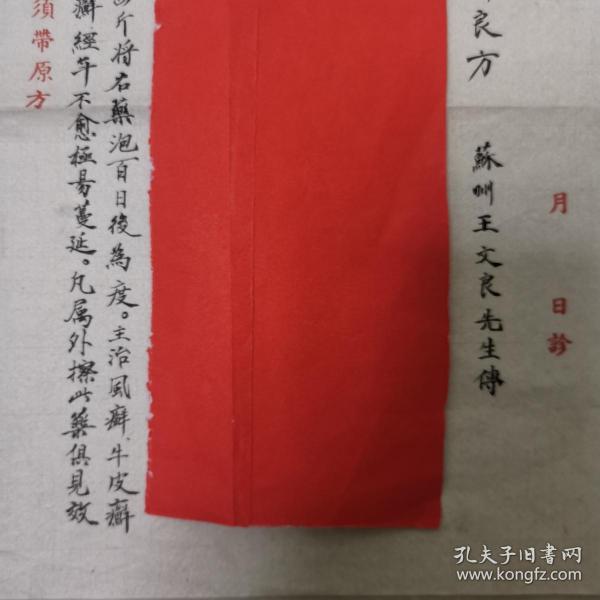 月 日診
良方
蘇州王文良先生傳
斤將右藥泡百日後為度。主治風癬、牛皮癬
癬、經年不愈極易蔓延。凡属外擦此藥俱見效
須帶原方
孔夫子旧书网
www.kongfz.com